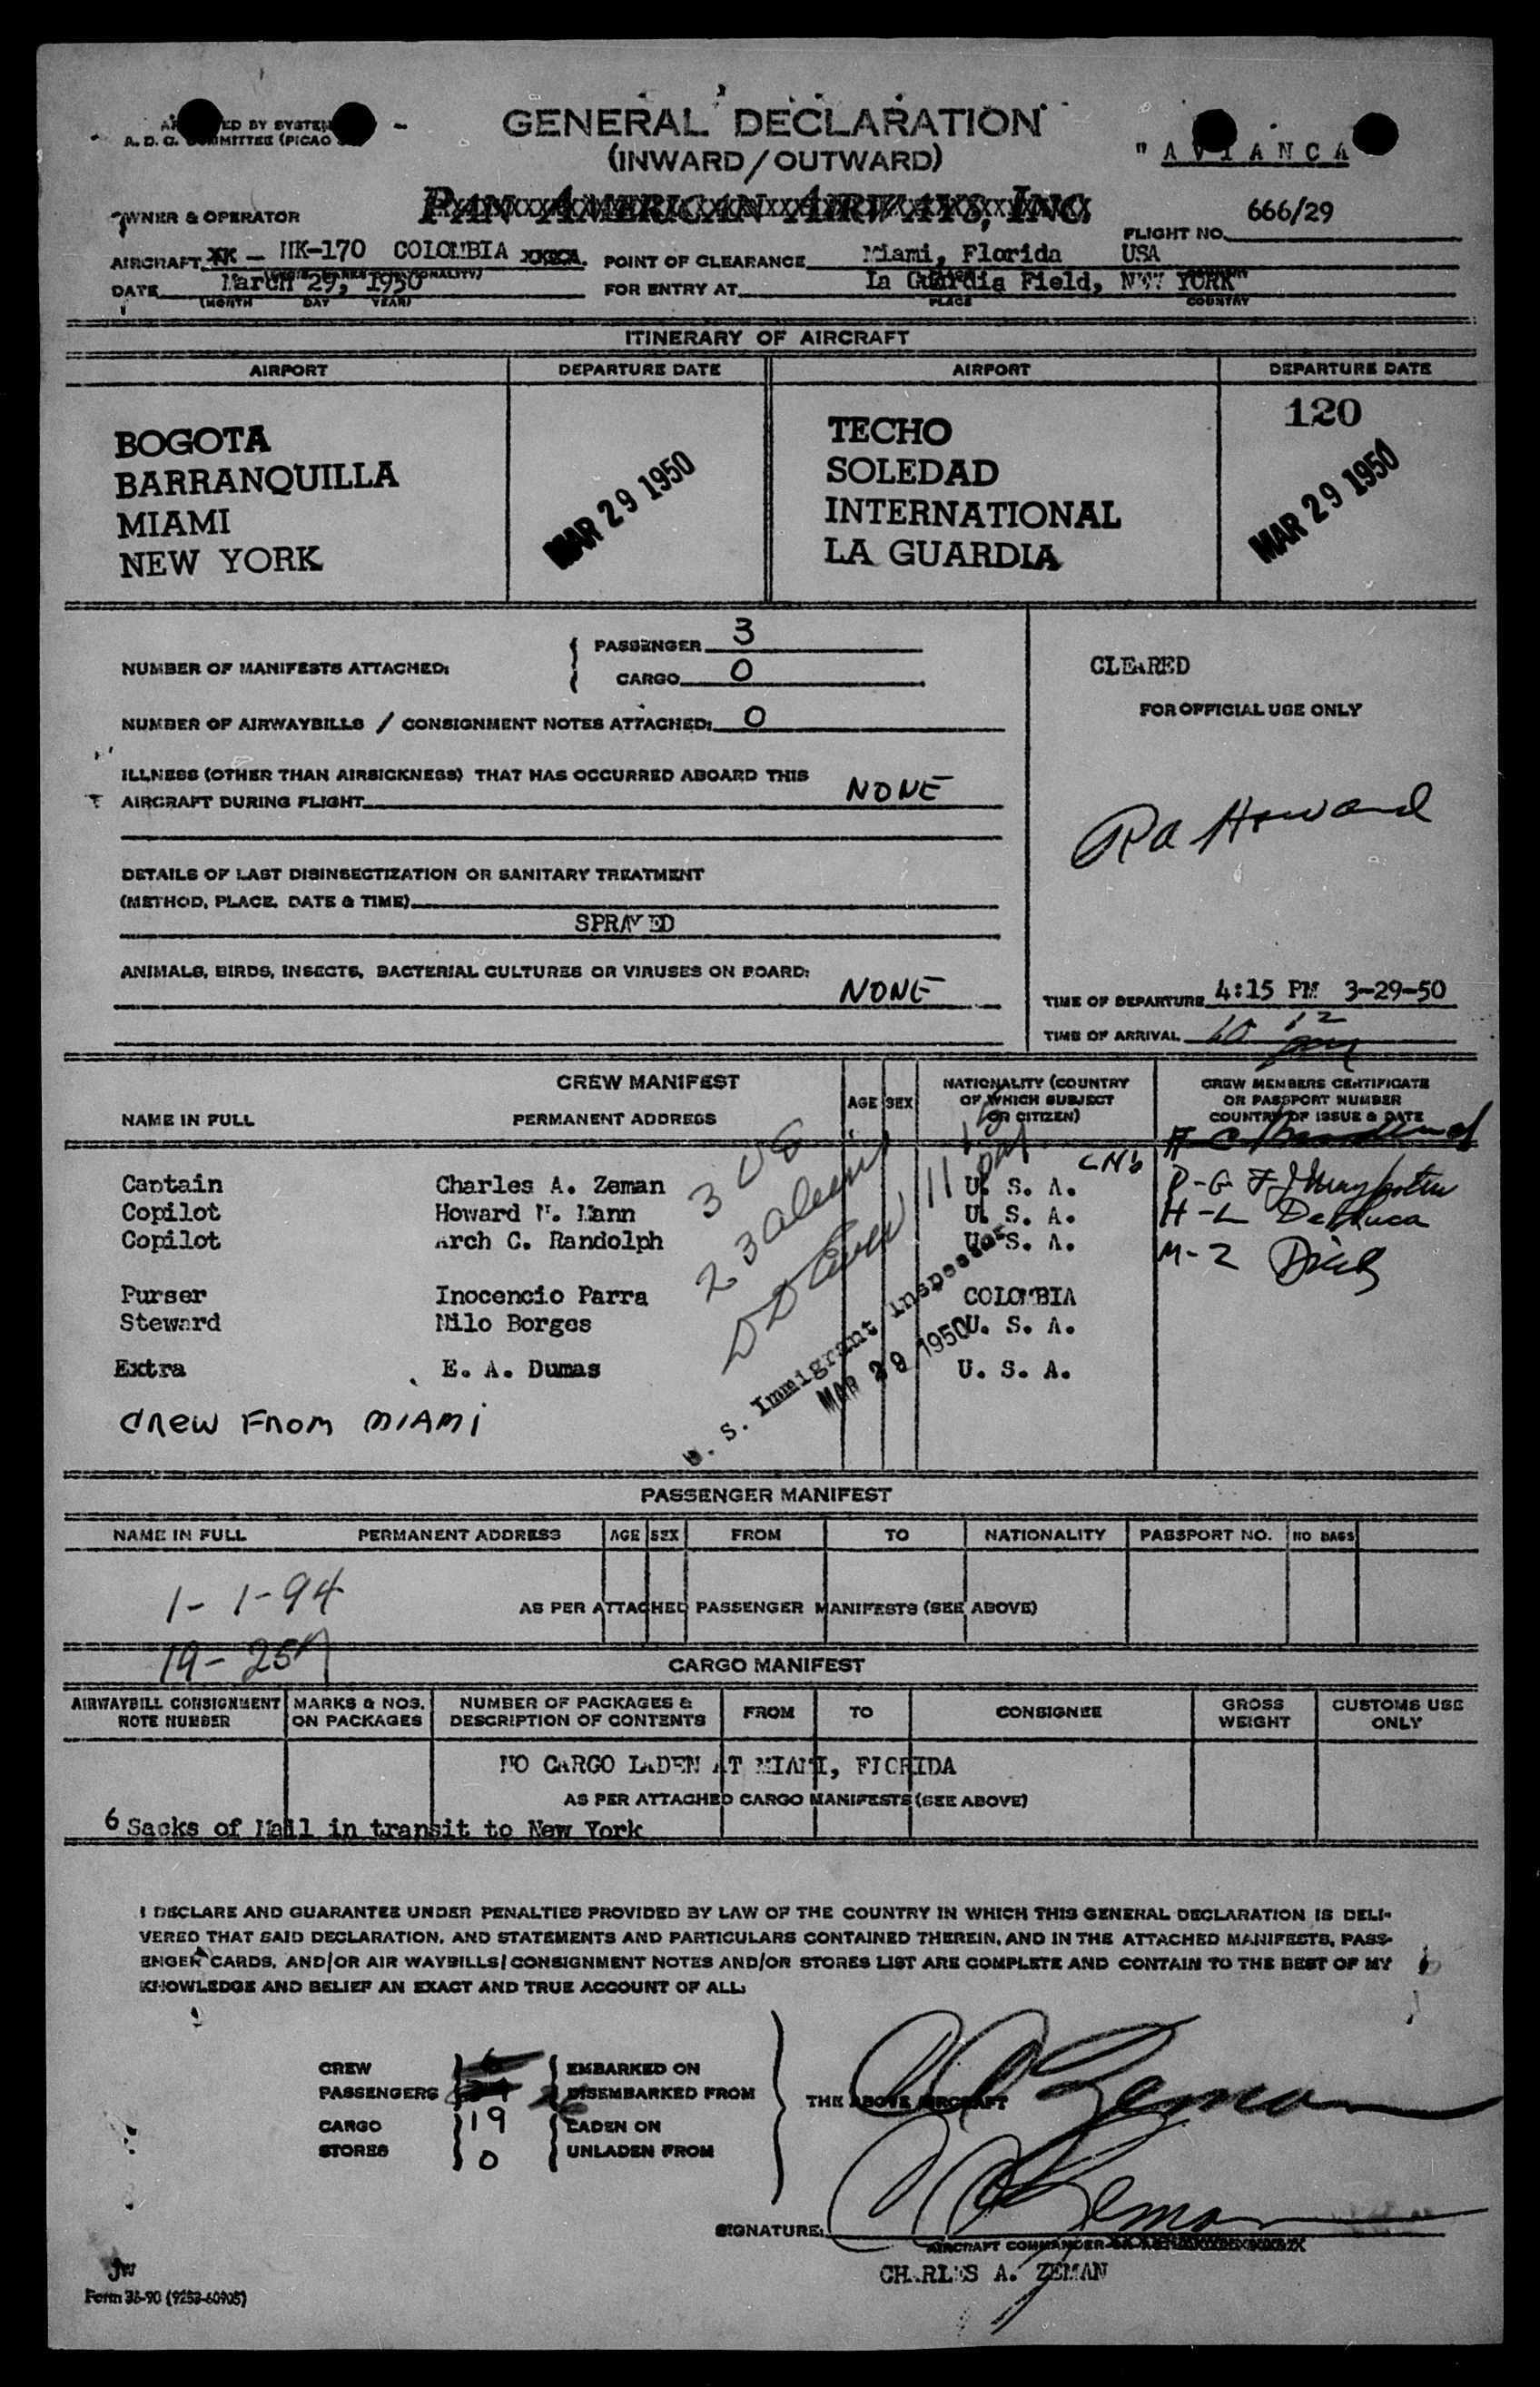 GENERAL DECLARATION
(INWARD/OUTWARD)
"AVIANCA
PAN AMERICAN AIRWAYS, INC.
OWNER & OPERATOR
666/29
FLIGHT NO.
AIRCRAFT HK-170 COLOMBIA POINT OF CLEARANCE Miami, Florida USA
DATE March 29, 1950 FOR ENTRY AT La Guardia Field, NEW YORK
(MONTH DAY YEAR) PLACE COUNTRY
ITINERARY OF AIRCRAFT
AIRPORT DEPARTURE DATE AIRPORT DEPARTURE DATE
120
BOGOTA TECHO
BARRANQUILLA MAR 29 1950 SOLEDAD MAR 29 1950
MIAMI INTERNATIONAL
NEW YORK LA GUARDIA
NUMBER OF MANIFESTS ATTACHED: PASSENGER 3
CARGO 0
CLEARED
FOR OFFICIAL USE ONLY
NUMBER OF AIRWAYBILLS / CONSIGNMENT NOTES ATTACHED: 0
ILLNESS (OTHER THAN AIRSICKNESS) THAT HAS OCCURRED ABOARD THIS
AIRCRAFT DURING FLIGHT NONE
Howard
DETAILS OF LAST DISINSECTIZATION OR SANITARY TREATMENT
(METHOD, PLACE, DATE & TIME)
SPRAYED
ANIMALS, BIRDS, INSECTS, BACTERIAL CULTURES OR VIRUSES ON BOARD:
NONE
TIME OF DEPARTURE 4:15 PM 3-29-50
TIME OF ARRIVAL
CREW MANIFEST
NAME IN FULL PERMANENT ADDRESS AGE SEX NATIONALITY (COUNTRY OF WHICH SUBJECT OR CITIZEN) CREW MEMBERS CERTIFICATE OR PASSPORT NUMBER COUNTRY OF ISSUE & DATE
Captain Charles A. Zeman U. S. A.
Copilot Howard Mann U. S. A.
Copilot Arch C. Randolph U. S. A.
Purser Inocencio Parra COLOMBIA
Steward Nilo Borges U. S. A.
Extra E. A. Dumas U. S. A.
U. S. Immigrant Inspector
MAR 29 1950
Crew From Miami
PASSENGER MANIFEST
NAME IN FULL PERMANENT ADDRESS AGE SEX FROM TO NATIONALITY PASSPORT NO. NO BAGS
1-1-94
AS PER ATTACHED PASSENGER MANIFESTS (SEE ABOVE)
CARGO MANIFEST
AIRWAYBILL CONSIGNMENT NOTE NUMBER MARKS & NOS. ON PACKAGES NUMBER OF PACKAGES & DESCRIPTION OF CONTENTS FROM TO CONSIGNEE GROSS WEIGHT CUSTOMS USE ONLY
NO CARGO LADEN AT MIAMI, FLORIDA
AS PER ATTACHED CARGO MANIFESTS (SEE ABOVE)
6 Sacks of Mail in transit to New York
I DECLARE AND GUARANTEE UNDER PENALTIES PROVIDED BY LAW OF THE COUNTRY IN WHICH THIS GENERAL DECLARATION IS DELI-
VERED THAT SAID DECLARATION, AND STATEMENTS AND PARTICULARS CONTAINED THEREIN, AND IN THE ATTACHED MANIFESTS, PASS-
ENGER CARDS, AND/OR AIR WAYBILLS/CONSIGNMENT NOTES AND/OR STORES LIST ARE COMPLETE AND CONTAIN TO THE BEST OF MY
KNOWLEDGE AND BELIEF AN EXACT AND TRUE ACCOUNT OF ALL:
CREW 6 EMBARKED ON
PASSENGERS DISEMBARKED FROM THE ABOVE AIRCRAFT
CARGO 19 LADEN ON
STORES 0 UNLADEN FROM
SIGNATURE: C A Zeman
AIRCRAFT COMMANDER
CHARLES A. ZEMAN
Form 36-90 (9253-60905)